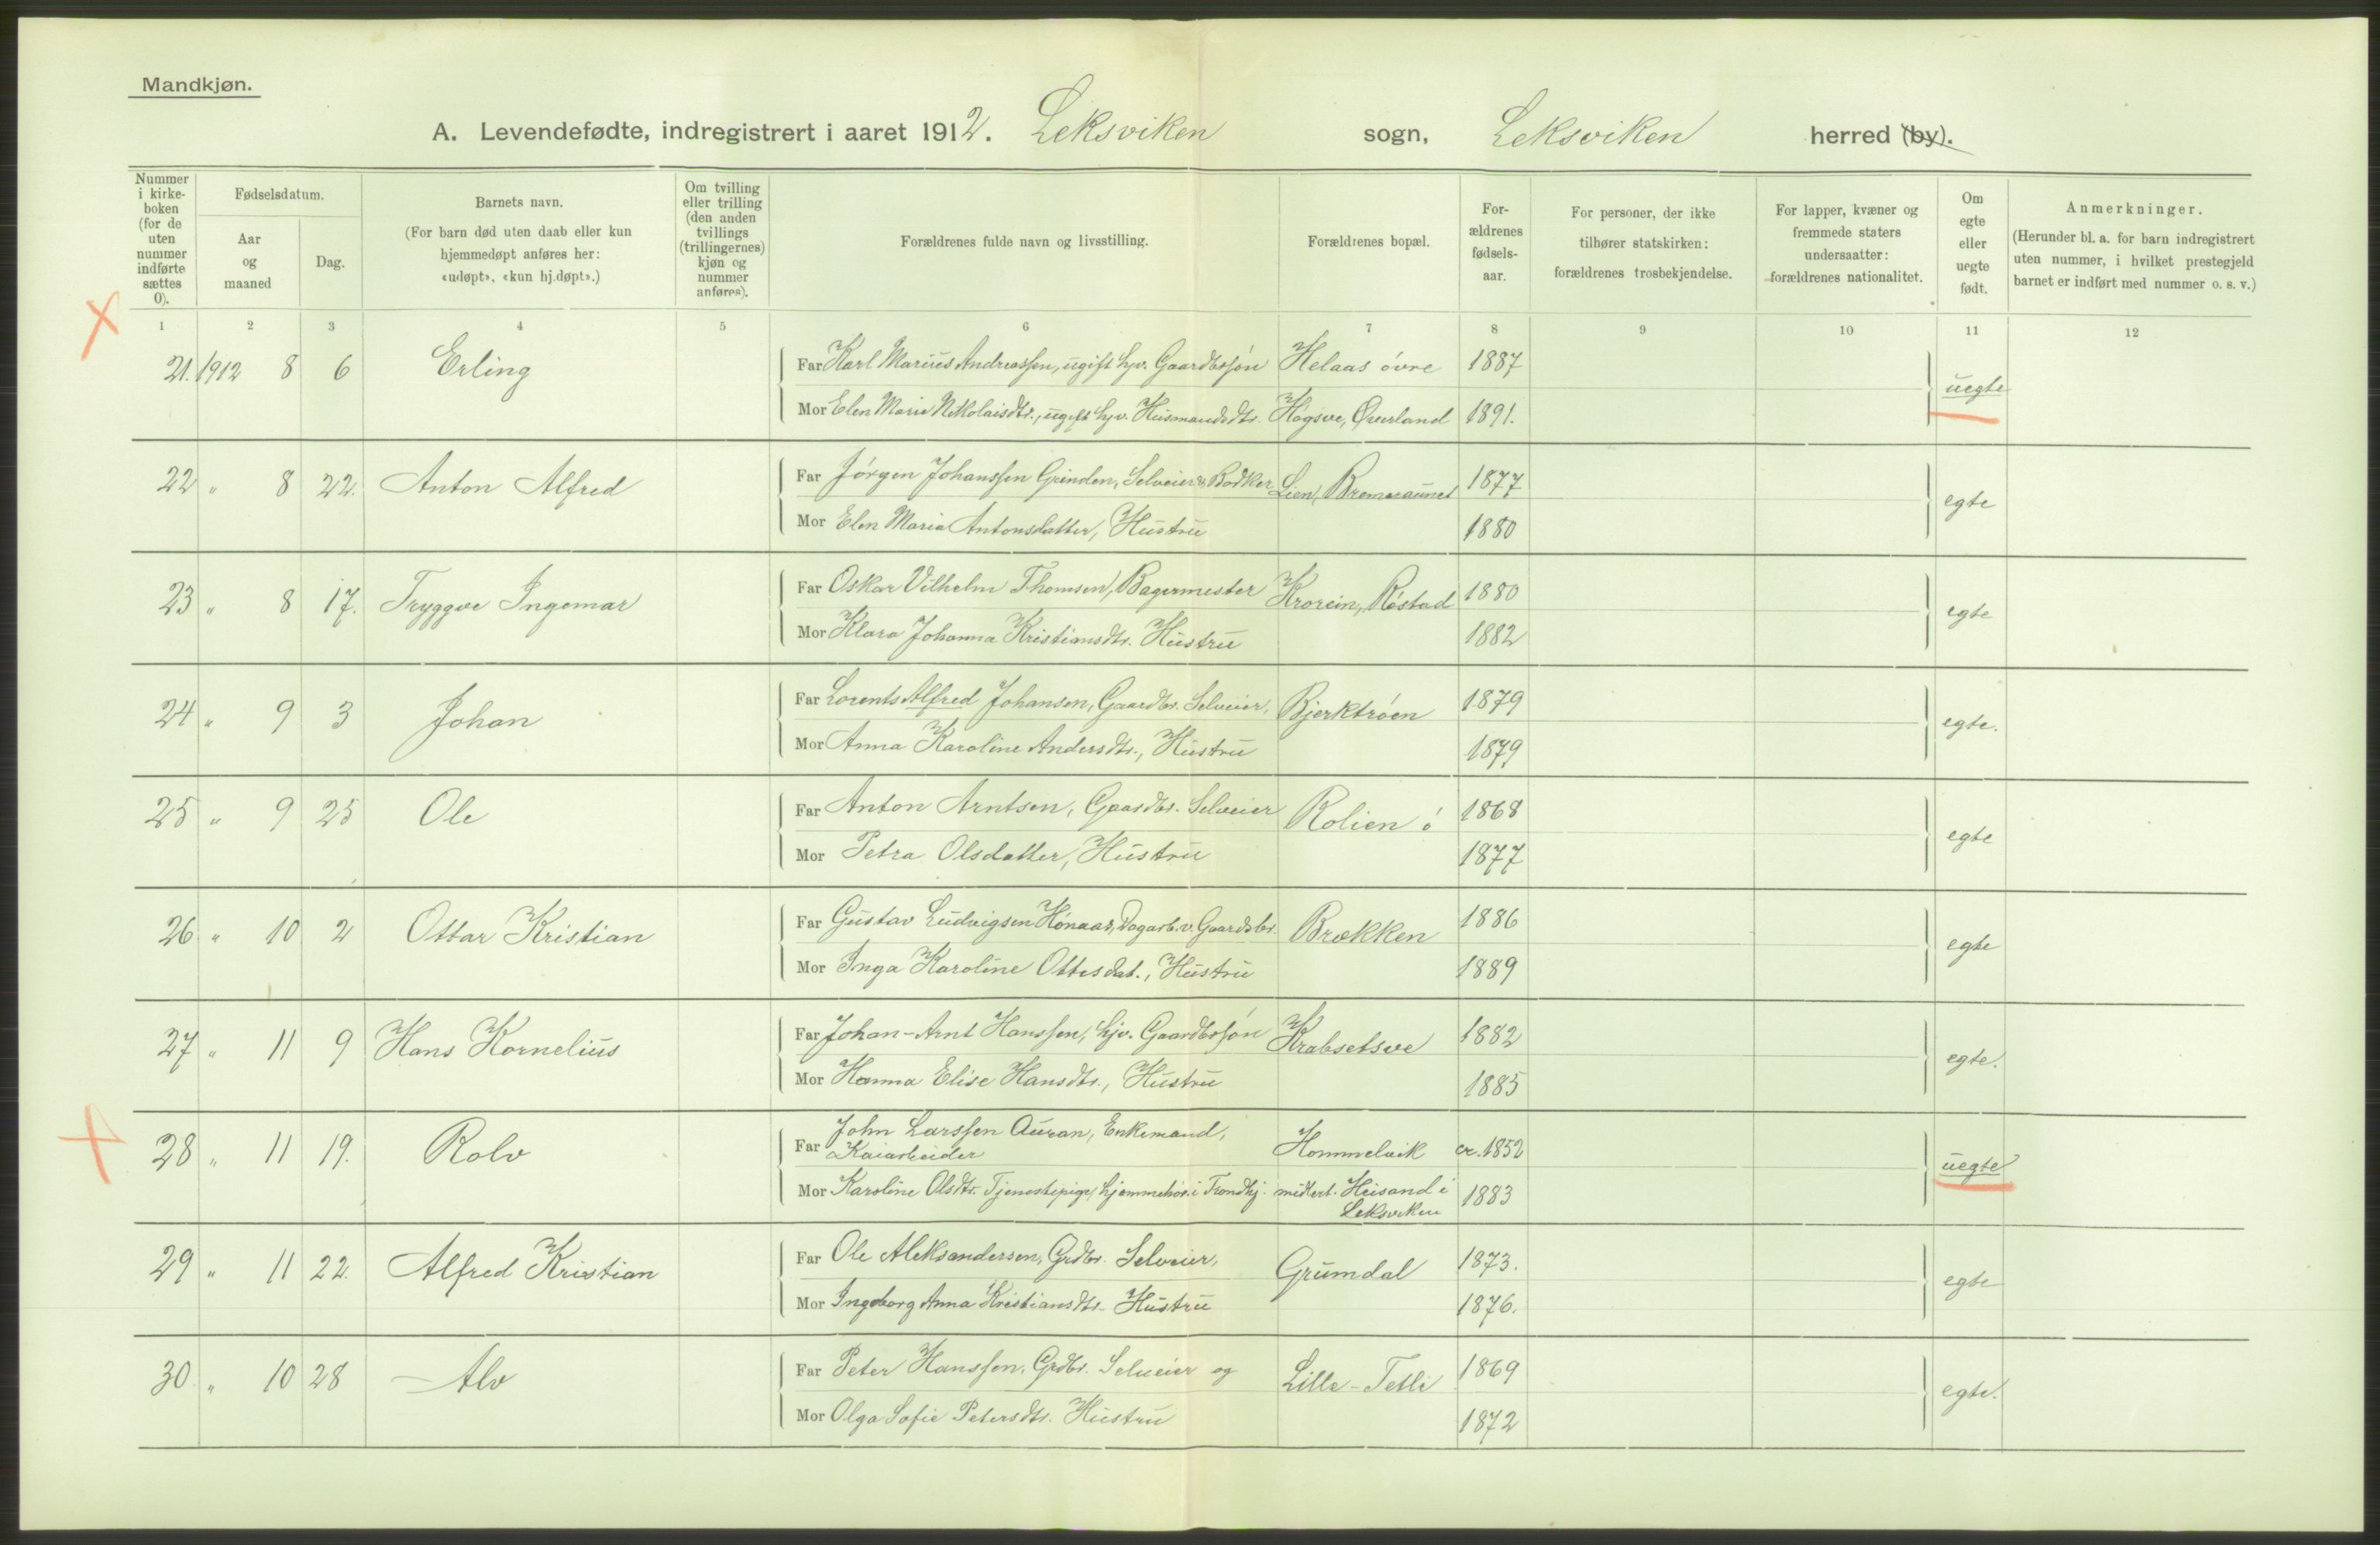 Mandkjøn.
A. Levendefødte, indregistrert i aaret 1912. Leksviken sogn, Leksviken herred (by).
Nummer i kirkeboken (for de uten nummer indførte sættes 0).
Fødselsdatum.
Aar og maaned
Dag.
Barnets navn.
(For barn død uten daab eller kun hjemmedøpt anføres her: «udøpt», «kun hj.døpt».)
Om tvilling eller trilling (den anden tvillings (trillingernes) kjøn og nummer anføres).
Forældrenes fulde navn og livsstilling.
Forældrenes bopæl.
Forældrenes fødselsaar.
For personer, der ikke tilhører statskirken: forældrenes trosbekjendelse.
For lapper, kvæner og fremmede staters undersaatter: forældrenes nationalitet.
Om egte eller uegte født.
Anmerkninger.
(Herunder bl. a. for barn indregistrert uten nummer, i hvilket prestegjeld barnet er indført med nummer o. s. v.)
1 2 3 4 5 6 7 8 9 10 11 12
21. 1912 8 6 Erling Far Karl Marius Andreassen, ugift hjv. Gaardbrsøn Helaas övre 1887 uegte
Mor Elen Marie Nikolaisdtr., ugift hjv. Husmandsdtr. Högsve, Överland 1891.
22 " 8 22. Anton Alfred Far Jörgen Johanssen Grinden, Selveier & Bödker Lien, Bremeraunet 1877 egte
Mor Elen Maria Antonsdatter, Hustru 1880
23 " 8 17. Tryggve Ingemar Far Oskar Vilhelm Thomsen, Bagermester Krovein, Röstad 1880 egte
Mor Klara Johanna Kristiansdtr. Hustru 1882
24 " 9 3 Johan Far Lorents Alfred Johansen, Gaardbr. Selveier, Bjerktröen 1879 egte.
Mor Anna Karoline Andersdtr., Hustru 1879
25 " 9 25 Ole Far Anton Arntsen, Gaardbr. Selveier Rolien ö 1868 egte
Mor Petra Olsdatter, Hustru 1877
26 " 10 2 Ottar Kristian Far Gustav Ludvigsen Hönaas, Dagarb. v. Gaardsbr. Brækken 1886 egte
Mor Inga Karoline Ottesdat., Hustru 1889
27 " 11 9 Hans Kornelius Far Johan-Arnt Hanssen, hjv. Gaardbrsön Krabsetsve 1882 egte.
Mor Hanna Elise Hansdtr., Hustru 1885
28 " 11 19. Rolv Far John Larssen Auran, Enkemand, Kaiarbeider Hommelvik ca. 1852 uegte
Mor Karoline Olsdtr. Tjenestepige, hjemmehör. i Trondhj. midlert. Heisand i Leksviken 1883
29 " 11 22. Alfred Kristian Far Ole Aleksandersen, Grdbr. Selveier, Grumdal 1873. egte
Mor Ingeborg Anna Kristiansdtr. Hustru 1876.
30 " 10 28 Alv Far Peter Hanssen, Grdbr. Selveier og Lille-Tetli 1869 egte.
Mor Olga Sofie Petersdtr. Hustru 1872